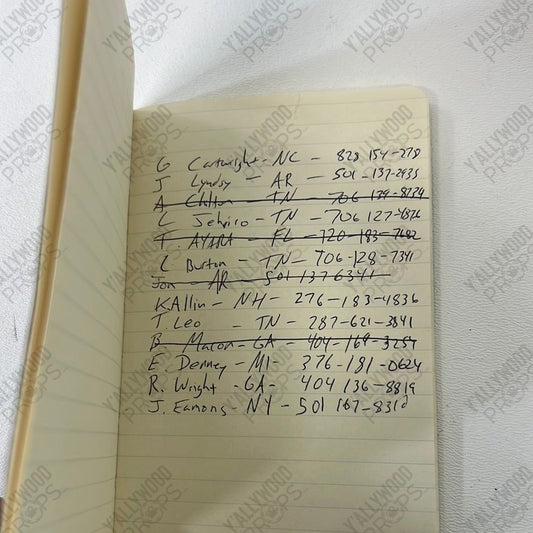 G Cartwright - NC - 828 154-278
J Lyndsy - AR - 501-137-2935
A Chilton - TN - 706 139-8234
C Jehrico - TN - 706 127-4826
T. - FL - 720-183-7682
L Burton - TN - 706-128-7341
Jon - AR - 501 1376341
K Allin - NH - 276-183-4836
T. Leo - TN - 287-621-3841
B. Macon - GA - 404-169-3257
E. Denney - MI - 376-181-0624
R. Wright - GA - 404 136-8819
J. Eamons - NY - 501 167-8310
Y'ALLYWOOD PROPS